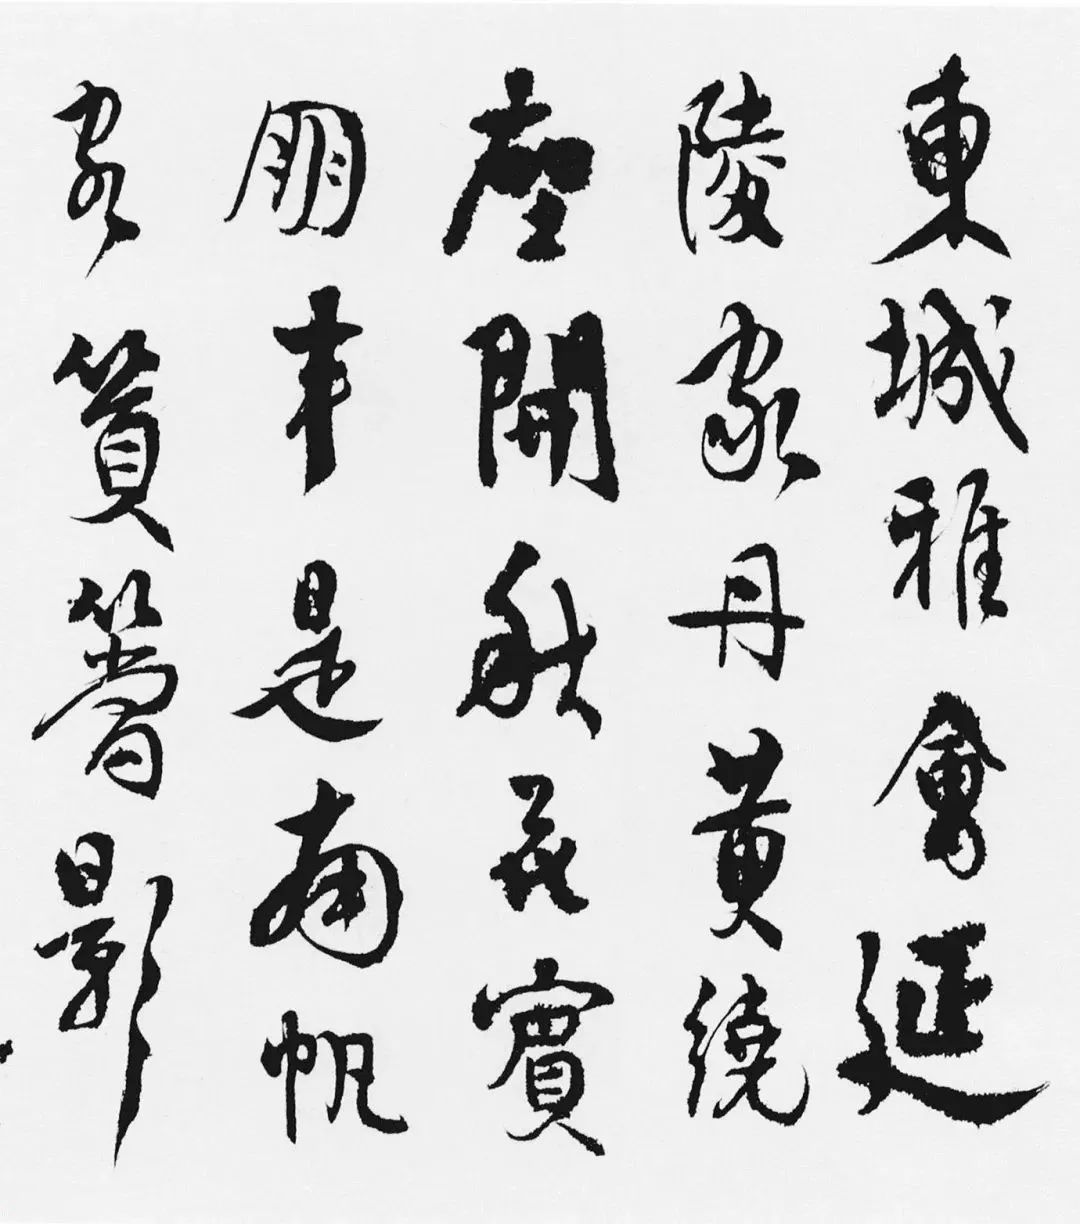 東城雅會延
陵家丹黄繞
座開秋花賓
朋半是南帆
客篔簹影